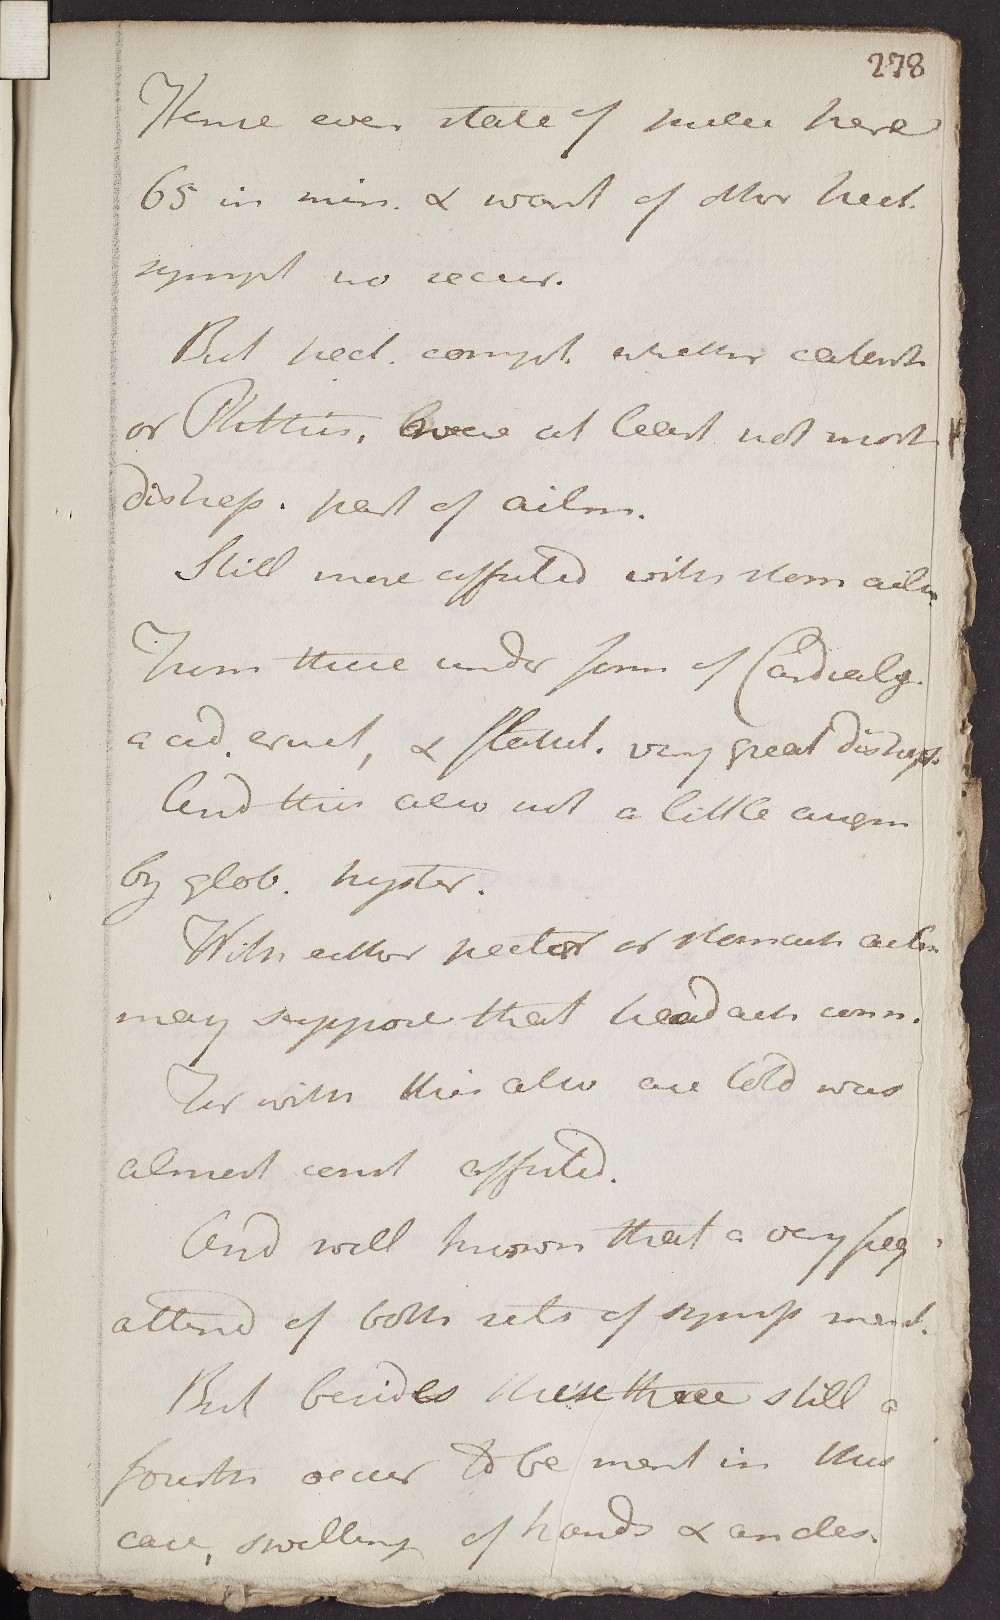 278
Hence even state of pulse here
65 in min. & want of other hect.
sympt no recur.
But pect. compt. whether catarrh
or Phthisis, here at least not most
distress. part of ailm.
Still more affected with stom ailm
From these under form of Cardialg.
acid. eruct, & flatul. very great distress.
And this also not a little augm
by glob. hyster.
With either pector or stomach ailm
may suppose that headach conn.
For with this also are told was
almost const affected.
And well known that a very freq
attend of both sets of symp ment.
But besides these three still a
fourth occur to be ment in this
case, swelling of hands & ancles.